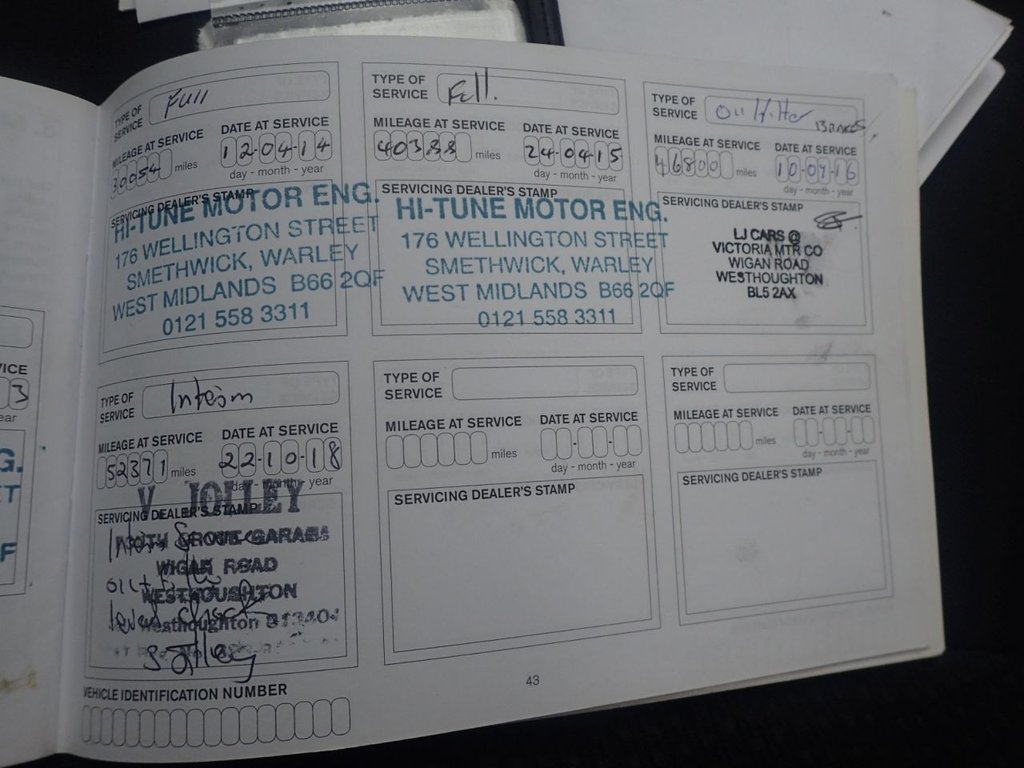 TYPE OF SERVICE Full
MILEAGE AT SERVICE DATE AT SERVICE
30054 miles 12-04-14
day - month - year
SERVICING DEALER'S STAMP
HI-TUNE MOTOR ENG.
176 WELLINGTON STREET
SMETHWICK, WARLEY
WEST MIDLANDS B66 2QF
0121 558 3311
TYPE OF SERVICE Full.
MILEAGE AT SERVICE DATE AT SERVICE
40388 miles 24-04-15
day - month - year
SERVICING DEALER'S STAMP
HI-TUNE MOTOR ENG.
176 WELLINGTON STREET
SMETHWICK, WARLEY
WEST MIDLANDS B66 2QF
0121 558 3311
TYPE OF SERVICE Oil filter
MILEAGE AT SERVICE DATE AT SERVICE
46800 miles 10-09-16
day - month - year
SERVICING DEALER'S STAMP
LJ CARS @
VICTORIA MTR CO
WIGAN ROAD
WESTHOUGHTON
BL5 2AX
TYPE OF SERVICE Interim
MILEAGE AT SERVICE DATE AT SERVICE
52371 miles 22-10-18
day - month - year
V. JOLLEY
SERVICING DEALER'S STAMP
GROVE GARAGE
WIGAN ROAD
WESTHOUGHTON
Westhoughton
TYPE OF SERVICE
MILEAGE AT SERVICE DATE AT SERVICE
miles
day - month - year
SERVICING DEALER'S STAMP
TYPE OF SERVICE
MILEAGE AT SERVICE DATE AT SERVICE
miles
day - month - year
SERVICING DEALER'S STAMP
VEHICLE IDENTIFICATION NUMBER
43